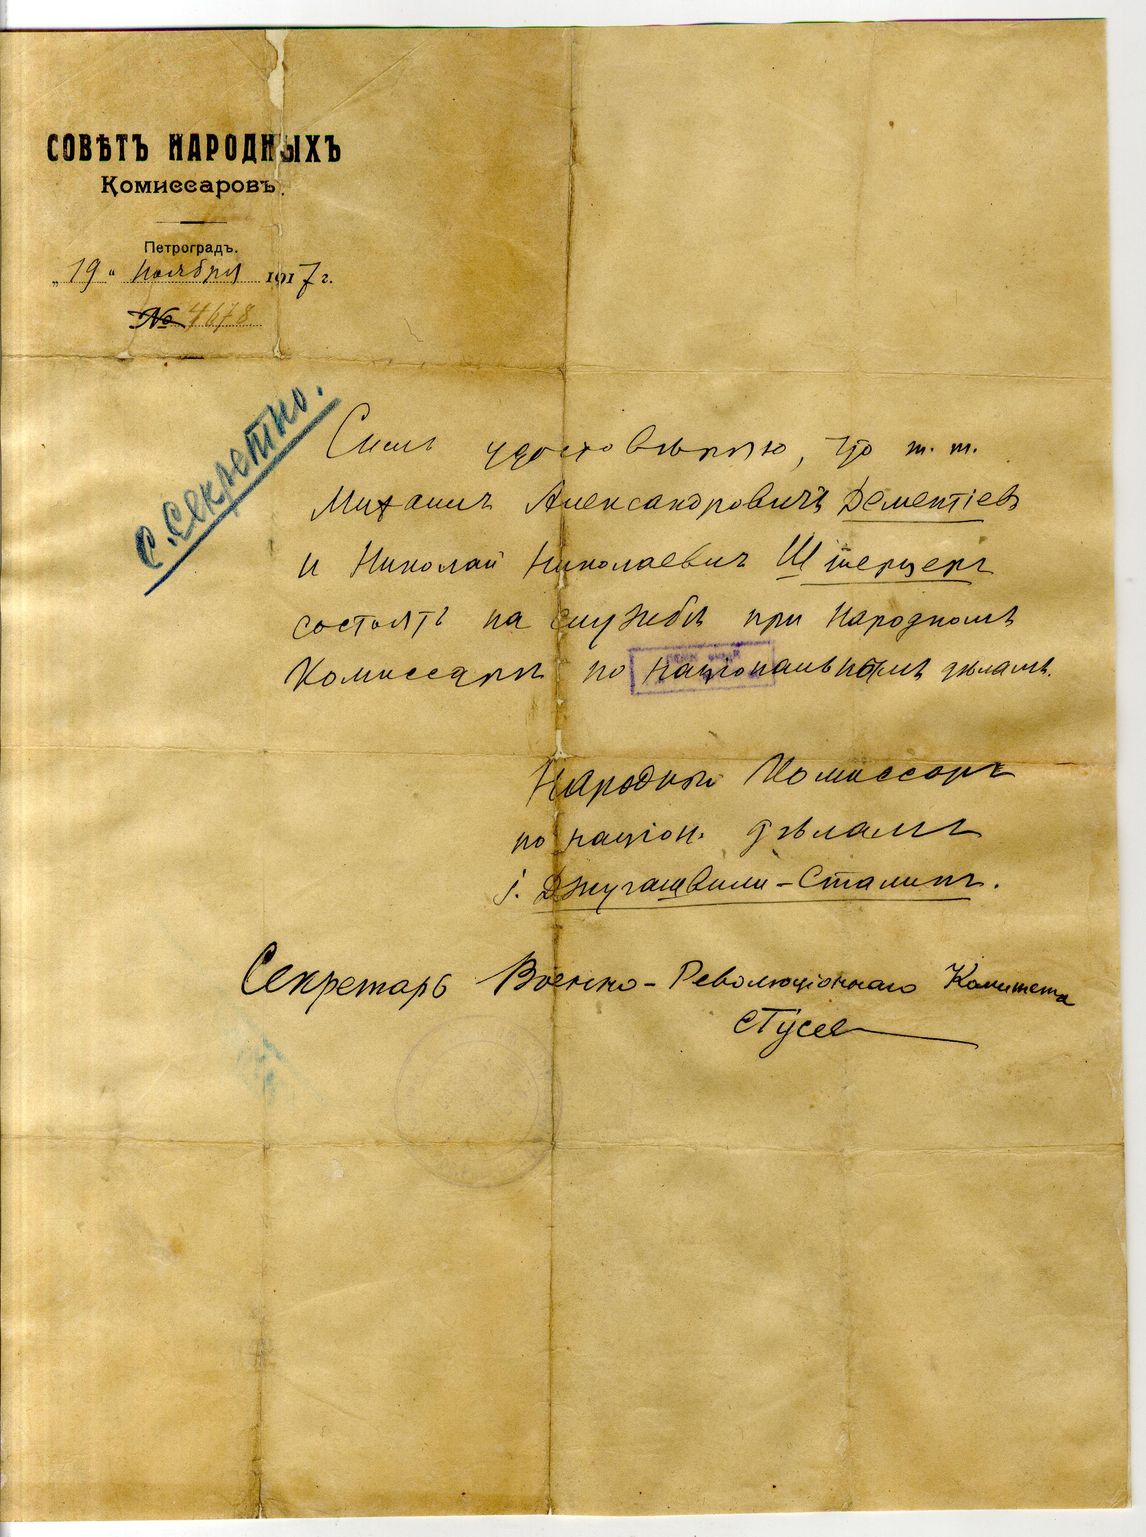 СОВѢТЪ НАРОДНЫХЪ
Комиссаровъ.
Петроградъ.
„19“ ноября 1917 г.
№ 4678
С. Секретно.
Симъ удостовѣряю, что т. т.
Михаилъ Александровичъ Дементіевъ
и Николай Николаевичъ Штерцеръ
состоятъ на службѣ при Народномъ
Комиссарѣ по національнымъ дѣламъ.
Народный Комиссаръ
по націон. дѣламъ
І. Джугашвили-Сталинъ.
Секретарь Военно-Революціоннаго Комитета
СГусев